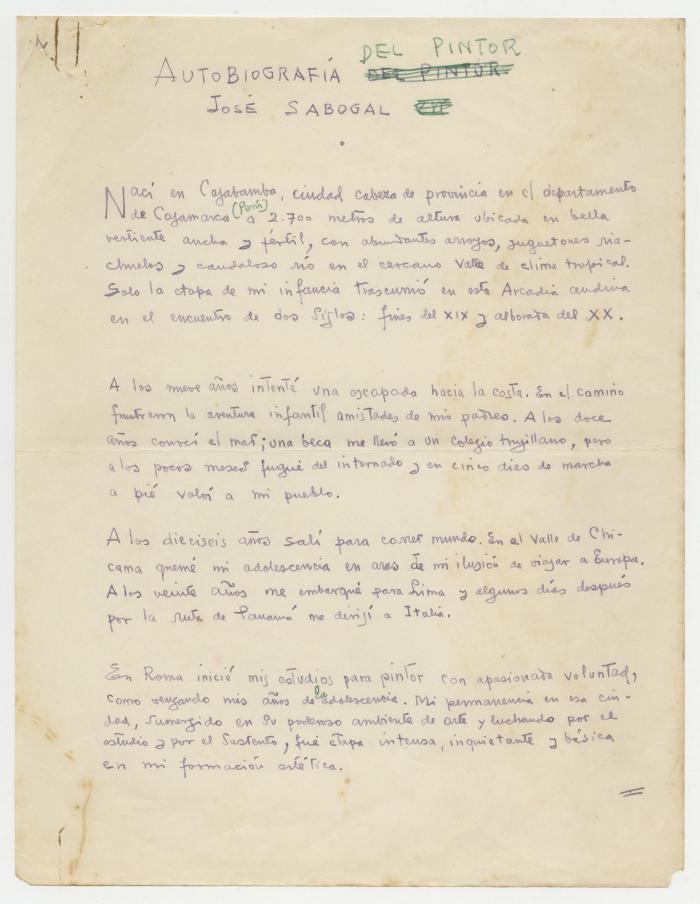 DEL PINTOR
AUTOBIOGRAFÍA DEL PINTOR
JOSÉ SABOGAL
Nací en Cajabamba, ciudad cabeza de provincia en el departamento
de Cajamarca (Perú) a 2.700 metros de altura ubicada en bella
vertiente ancha y fértil, con abundantes arroyos, juguetones ria-
chuelos y caudaloso río en el cercano Valle de clima tropical.
Solo la etapa de mi infancia trascurrió en esta Arcadia andina
en el encuentro de dos siglos: fines del XIX y alborada del XX.
A los nueve años intenté una escapada hacia la costa. En el camino
frustraron la aventura infantil amistades de mis padres. A los doce
años conocí el mar; una beca me llevó a un colegio trujillano, pero
a los pocos meses fugué del internado y en cinco días de marcha
a pié volví a mi pueblo.
A los dieciseis años salí para correr mundo. En el Valle de Chi-
cama quemé mi adolescencia en aras de mi ilusión de viajar a Europa.
A los veinte años me embarqué para Lima y algunos días después
por la ruta de Panamá me dirijí a Italia.
En Roma inicié mis estudios para pintor con apasionada voluntad,
como vengando mis años de la adolescencia. Mi permanencia en esa ciu-
dad, sumergido en su poderoso ambiente de arte y luchando por el
estudio y por el sustento, fué etapa intensa, inquietante y básica
en mi formación estética.